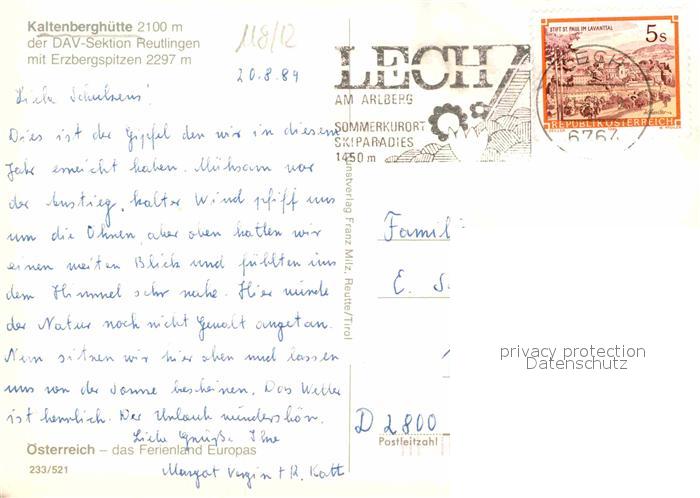 Kaltenberghütte 2100 m
der DAV-Sektion Reutlingen
mit Erzbergspitzen 2297 m
118/12
20.8.89
Liebe Schulzens!
Dies ist der Gipfel den wir in diesem
Jahr erreicht haben. Mühsam war
der Anstieg, kalter Wind pfiff uns
um die Ohren, aber oben hatten wir
einen weiten Blick und fühlten uns
dem Himmel sehr nahe. Hier wurde
der Natur noch nicht Gewalt angetan.
Nun sitzen wir hier oben und lassen
uns von der Sonne bescheinen. Das Wetter
ist herrlich. Der Urlaub wunderschön.
Liebe Grüße Ihre
Margot
Österreich – das Ferienland Europas
233/521
Kunstverlag Franz Milz, Reutte/Tirol
LECH
AM ARLBERG
SOMMERKURORT
SKIPARADIES
1450 m
STIFT ST. PAUL IM LAVANTTAL
5 S
REPUBLIK ÖSTERREICH
LECH
6764
Famil
E. S
D 2800
Postleitzahl
privacy protection
Datenschutz